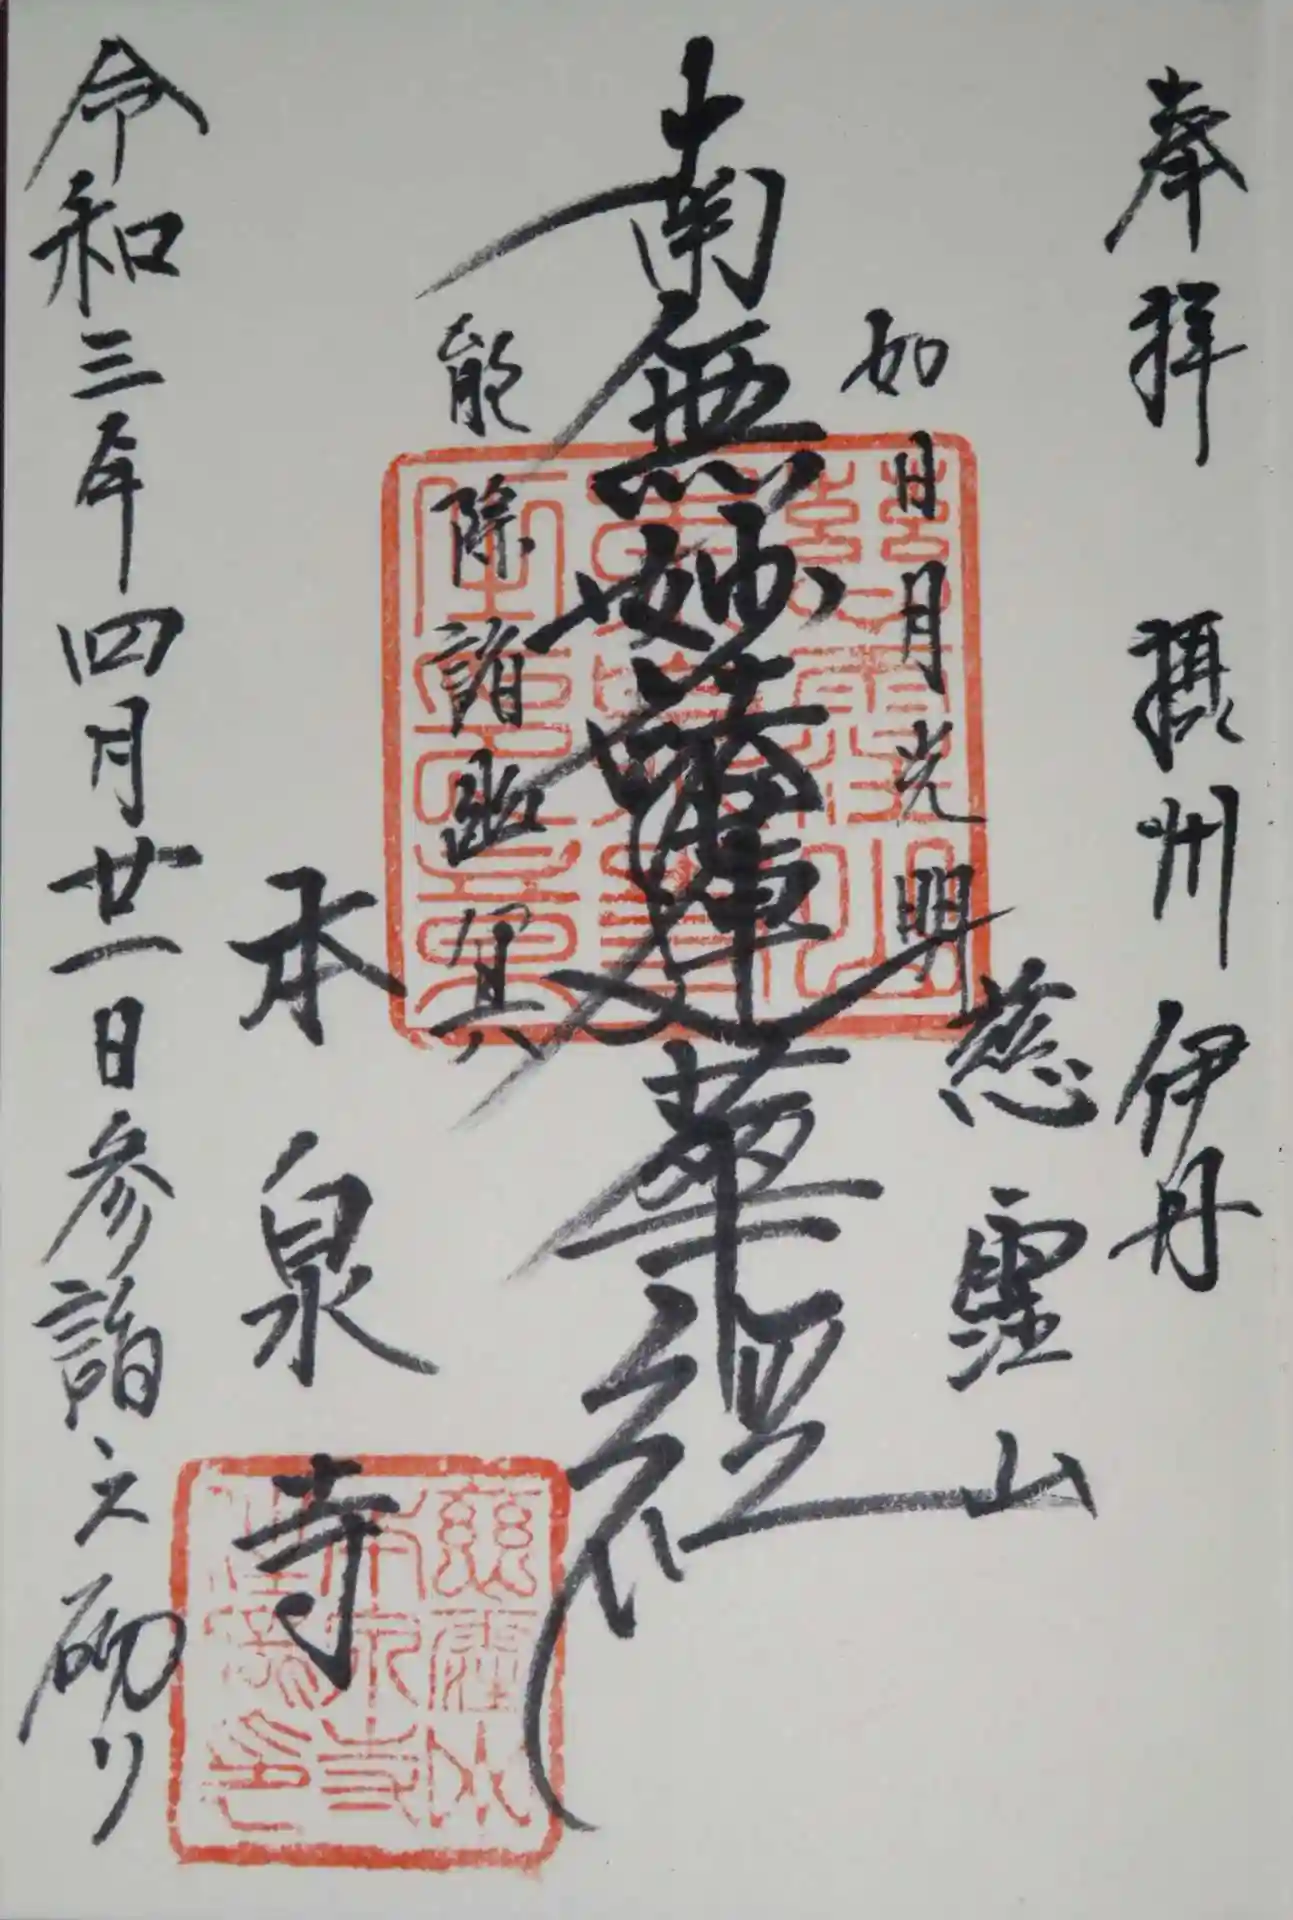 奉拝 摂州 伊丹
慈靈山
如日月光明
南無妙法蓮華経
能除諸幽冥
本泉寺
令和三年四月廿一日参詣之砌り
慈靈山
本泉寺